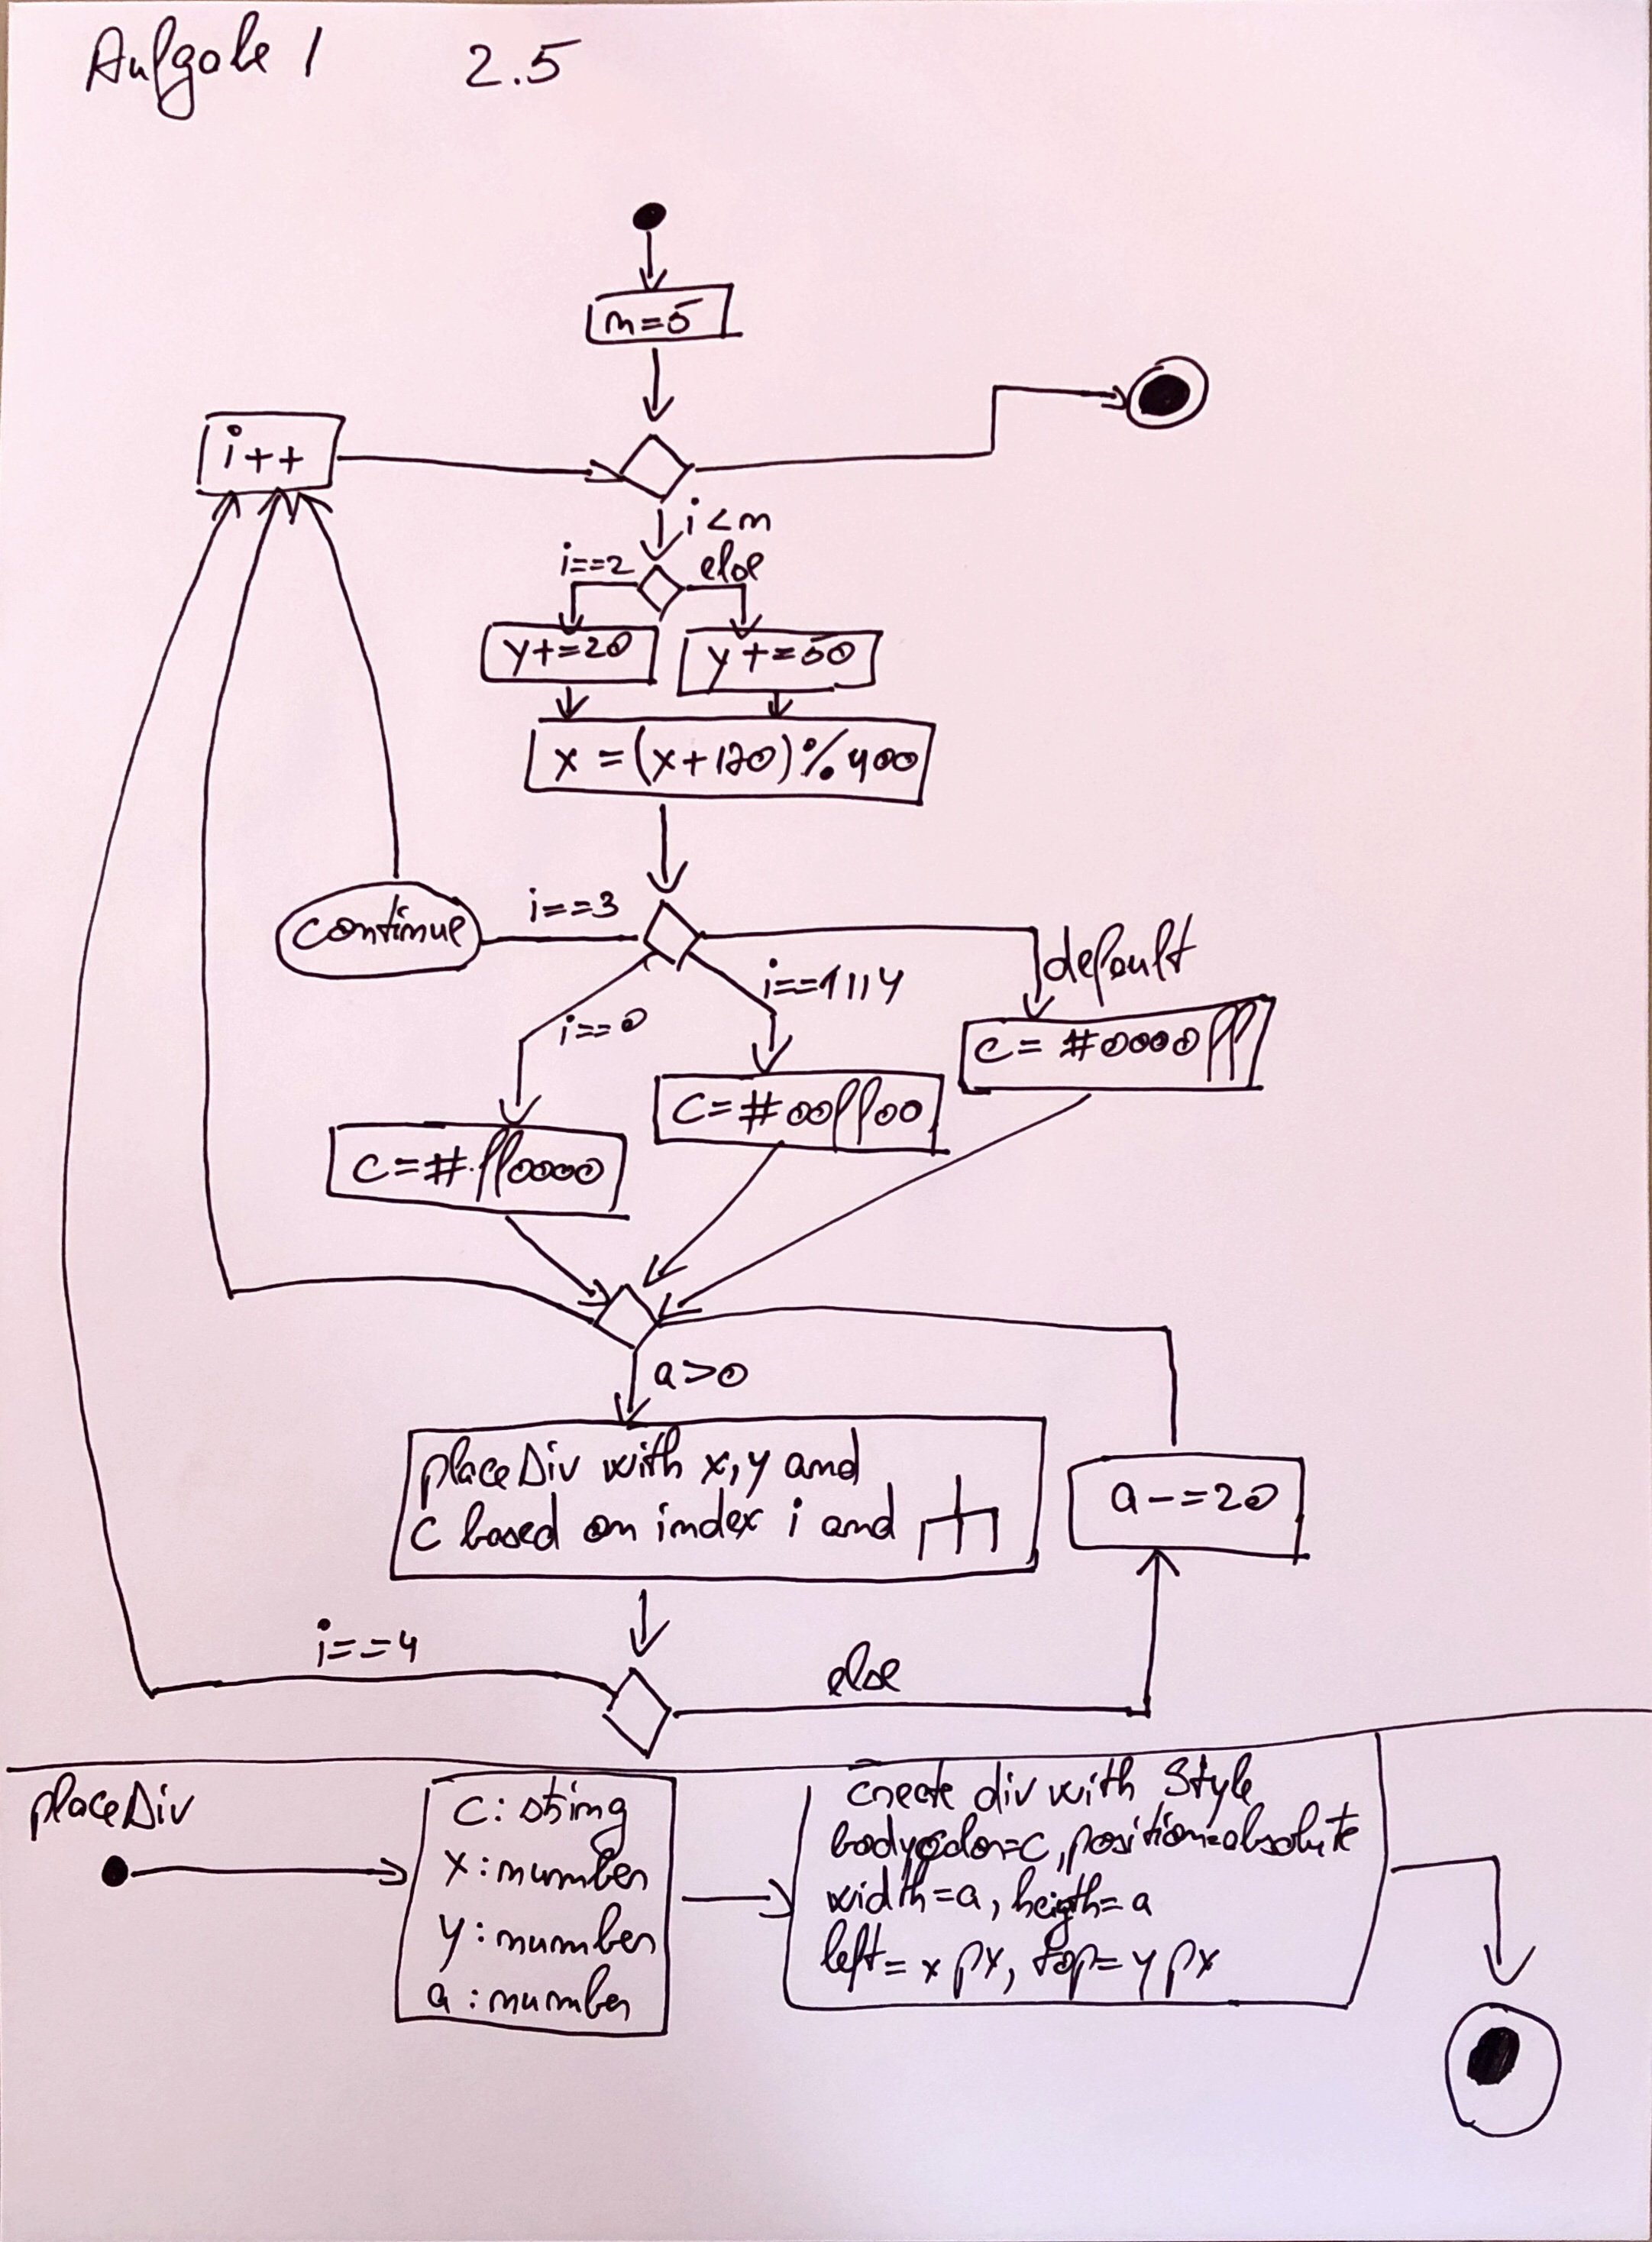 Aufgabe 1 2.5
n=5
i++
i<n
i==2 else
y+=20 y+=50
x=(x+120)%400
continue i==3
default
i==1||4
i==0
c=#0000ff
c=#00ff00
c=#ff0000
a>0
placeDiv with x,y and
c based on index i and
a-=20
i==4
else
placeDiv
c: string
x: number
y: number
a: number
create div with Style
bodycolor=c, position=absolute
width=a, heigth=a
left=x px, top=y px